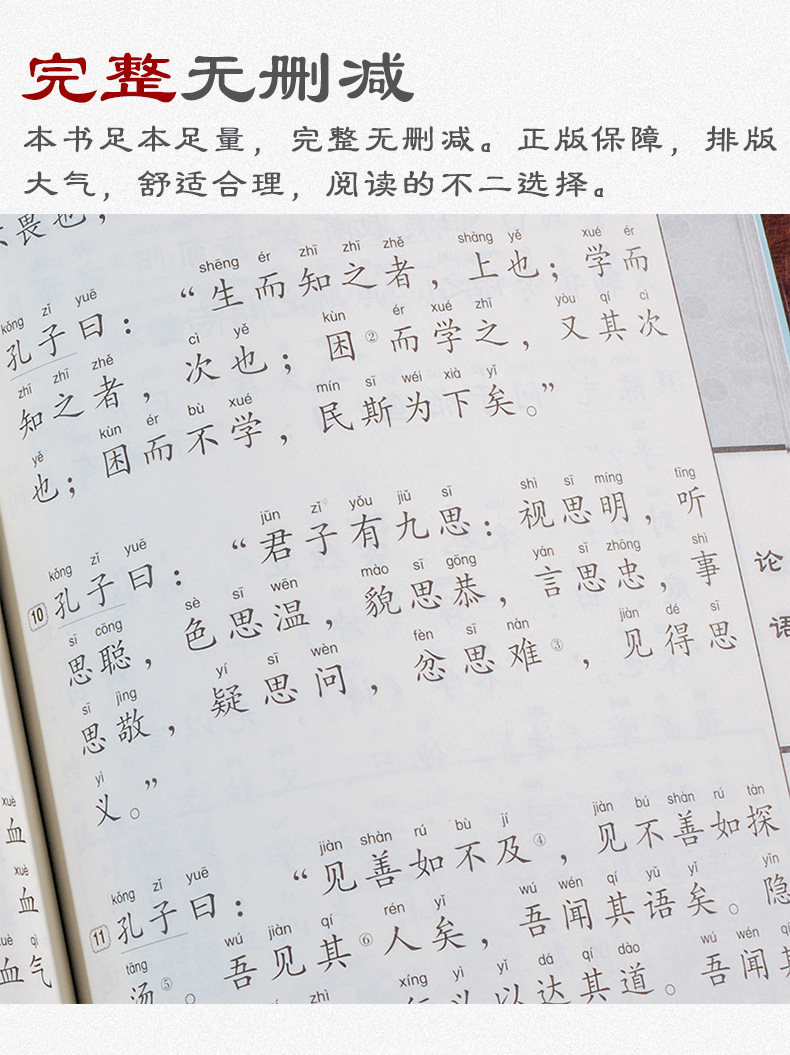 完整无删减
本书足本足量，完整无删减。正版保障，排版
大气，舒适合理，阅读的不二选择。
畏也，
kǒng zǐ yuē shēng ér zhī zhī zhě shàng yě xué ér
孔子曰：“生而知之者，上也；学而
zhī zhī zhě cì yě kùn ér xué zhī yòu qí cì
知之者，次也；困②而学之，又其次
yě kùn ér bù xué mín sī wéi xià yǐ
也；困而不学，民斯为下矣。”
kǒng zǐ yuē jūn zǐ yǒu jiǔ sī shì sī míng tīng
10 孔子曰：“君子有九思：视思明，听
sī cōng sè sī wēn mào sī gōng yán sī zhōng shì
思聪，色思温，貌思恭，言思忠，事
sī jìng yí sī wèn fèn sī nàn jiàn dé sī
思敬，疑思问，忿思难③，见得思
yì
义。”
kǒng zǐ yuē jiàn shàn rú bù jí jiàn bú shàn rú tàn
11 孔子曰：“见善如不及④，见不善如探
tāng wú jiàn qí rén yǐ wú wén qí yǔ yǐ yǐn
汤⑤。吾见其⑥人矣，吾闻其语矣。隐
zhì xíng yì yǐ dá qí dào
义以达其道。吾闻其
论
语
xuè
血
xuè
血
xuè qì
血气